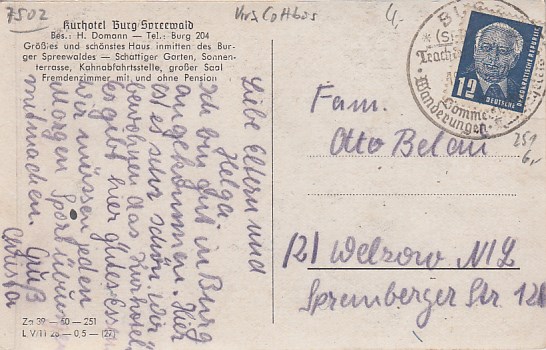 7502
Krs Cottbus
4,-
Kurhotel Burg/Spreewald
Bes.: H. Domann — Tel.: Burg 204
Größtes und schönstes Haus inmitten des Bur-
ger Spreewaldes — Schattiger Garten, Sonnen-
terrasse, Kahnabfahrtsstelle, großer Saal
Fremdenzimmer mit und ohne Pension
Liebe Eltern und
Helga!
Ich bin gut in Burg
angekommen. Hier
ist es sehr schön. Wir
bewohnen das Kurhotel
Es gibt hier gutes Ess
wir müssen jeden
Morgen Sport
mitmachen. Gruß
Christa
Za 39 — 50 — 251
L V/11 26 — 0,5 — (27)
Trach
Wanderungen
12
DEUTSCHE DEMOKRATISCHE REPUBLIK
251
6,-
Fam.
Otto Belau
12) Welzow N/L
Spremberger Str 121